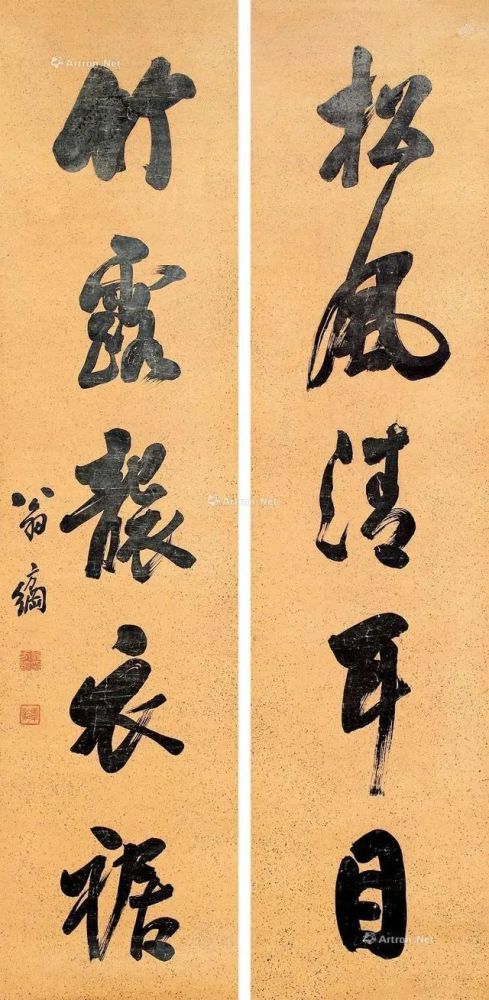 松風清耳目
竹露襲衣裾
翁方綱
Artron.Net
Artron.Net
Artron.Net